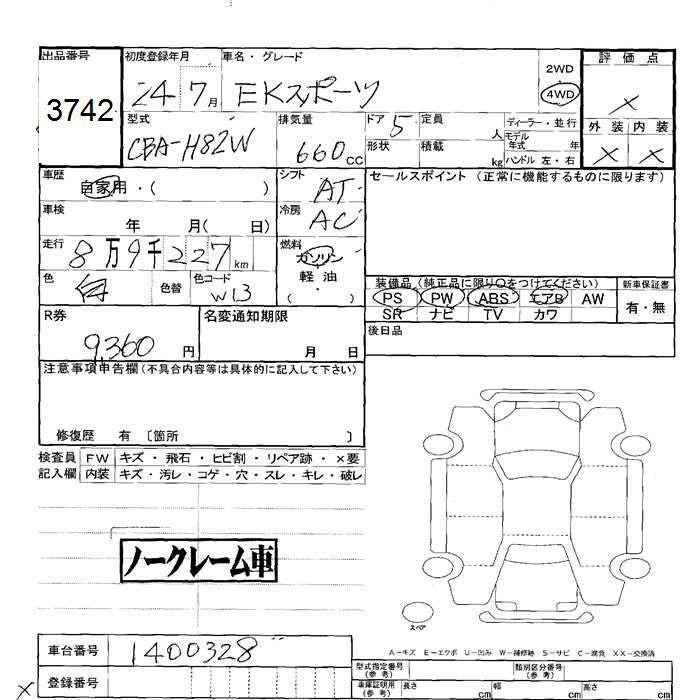 出品番号 初度登録年月 車名・グレード 2WD 評価点
3742 24 7月 EKスポーツ 4WD ×
型式 排気量 ドア 5 定員 人 ディーラー・並行 外装 内装
CBA-H82W 660cc 形状 積載 kg モデル年式 年 × ×
ハンドル 左・右
車歴 自家用・( ) シフト AT セールスポイント (正常に機能するものに限ります)
車検 年 月( 日) 冷房 AC
走行 8万9千227km 燃料 ガソリン
色 白 色替 色コード W13 軽油
( ・ )
装備品 (純正品に限り○をつけてください) 新車保証書
PS PW ABS エアB AW 有・無
SR ナビ TV カワ
R券 名変通知期限 後日品
9,360円 月 日
注意事項申告欄(不具合内容等は具体的に記入して下さい)
修復歴 有 〔箇所 〕
検査員 FW キズ・飛石・ヒビ割・リペア跡・×要
記入欄 内装 キズ・汚レ・コゲ・穴・スレ・キレ・破レ
ノークレーム車
スペア
A―キズ E―エクボ U―凹み W―補修跡 S―サビ C―腐食 XX―交換済
車台番号 1400328 型式指定番号(参考) 類別区分番号(参考)
× 登録番号 車庫証明用(参考) 長さ cm 幅 cm 高さ cm